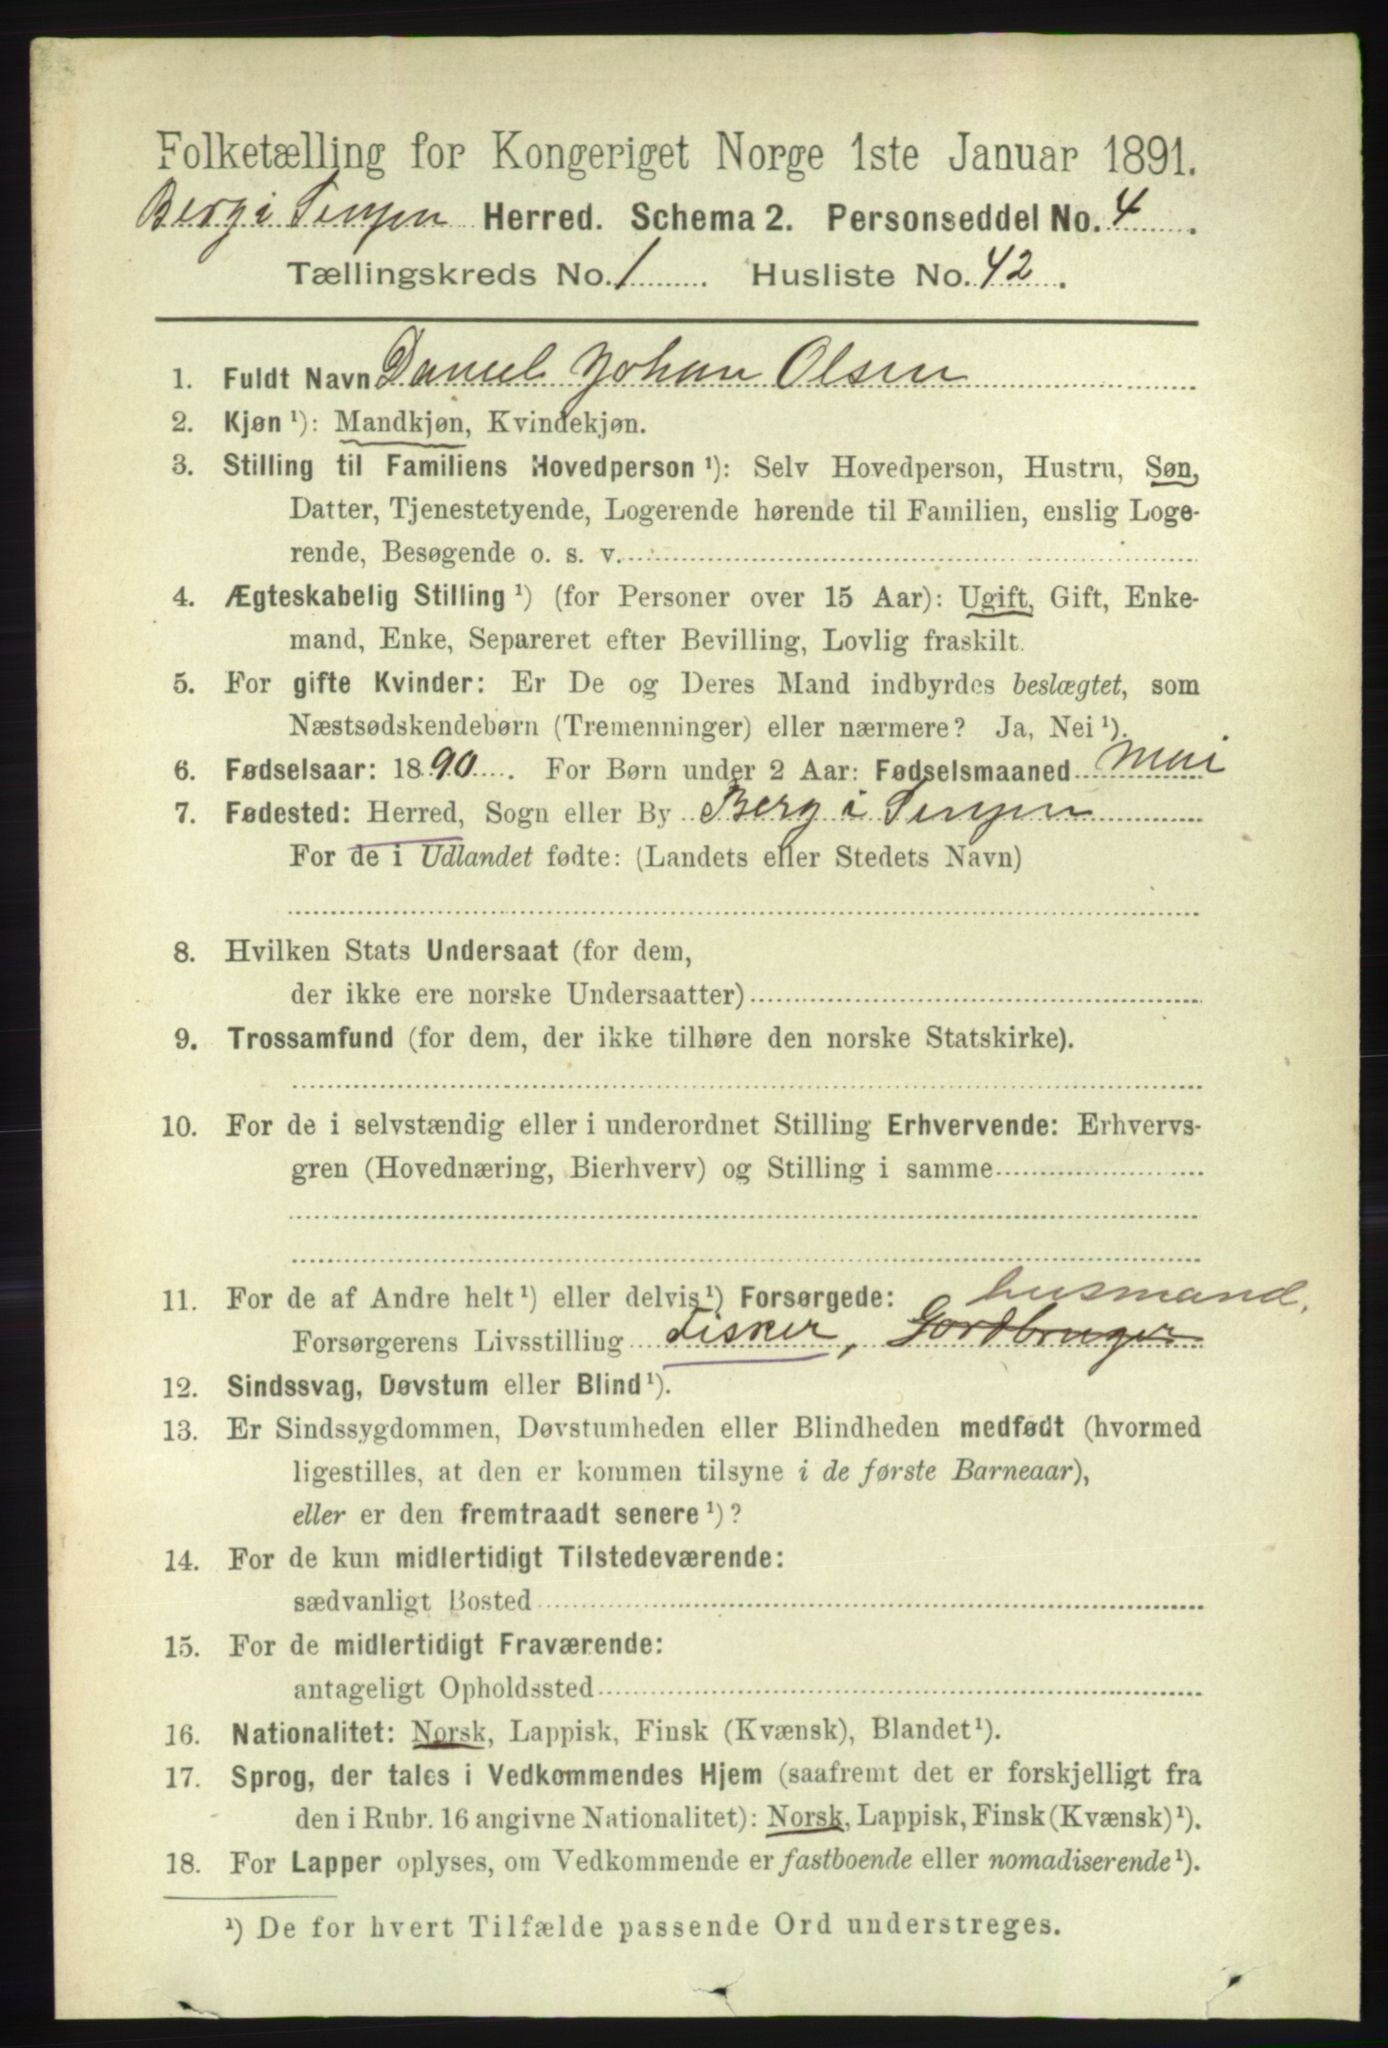 Folketælling for Kongeriget Norge 1ste Januar 1891.
Berg i Senjen Herred. Schema 2. Personseddel No. 4.
Tællingskreds No. 1. Husliste No. 42.
1. Fuldt Navn Daniel Johan Olsen
2. Kjøn ¹): Mandkjøn, Kvindekjøn.
3. Stilling til Familiens Hovedperson ¹): Selv Hovedperson, Hustru, Søn,
Datter, Tjenestetyende, Logerende hørende til Familien, enslig Loge-
rende, Besøgende o. s. v.
4. Ægteskabelig Stilling ¹) (for Personer over 15 Aar): Ugift, Gift, Enke-
mand, Enke, Separeret efter Bevilling, Lovlig fraskilt.
5. For gifte Kvinder: Er De og Deres Mand indbyrdes beslægtet, som
Næstsødskendebørn (Tremenninger) eller nærmere? Ja, Nei ¹).
6. Fødselsaar: 1890. For Børn under 2 Aar: Fødselsmaaned Mai
7. Fødested: Herred, Sogn eller By Berg i Senjen
For de i Udlandet fødte: (Landets eller Stedets Navn)
8. Hvilken Stats Undersaat (for dem,
der ikke ere norske Undersaatter)
9. Trossamfund (for dem, der ikke tilhøre den norske Statskirke).
10. For de i selvstændig eller i underordnet Stilling Erhvervende: Erhvervs-
gren (Hovednæring, Bierhverv) og Stilling i samme
11. For de af Andre helt ¹) eller delvis ¹) Forsørgede: husmand.
Forsørgerens Livsstilling Fisker, Gordbruger
12. Sindssvag, Døvstum eller Blind ¹).
13. Er Sindssygdommen, Døvstumheden eller Blindheden medfødt (hvormed
ligestilles, at den er kommen tilsyne i de første Barneaar),
eller er den fremtraadt senere ¹)?
14. For de kun midlertidigt Tilstedeværende:
sædvanligt Bosted
15. For de midlertidigt Fraværende:
antageligt Opholdssted
16. Nationalitet: Norsk, Lappisk, Finsk (Kvænsk), Blandet ¹).
17. Sprog, der tales i Vedkommendes Hjem (saafremt det er forskjelligt fra
den i Rubr. 16 angivne Nationalitet): Norsk, Lappisk, Finsk (Kvænsk) ¹).
18. For Lapper oplyses, om Vedkommende er fastboende eller nomadiserende ¹).
¹) De for hvert Tilfælde passende Ord understreges.